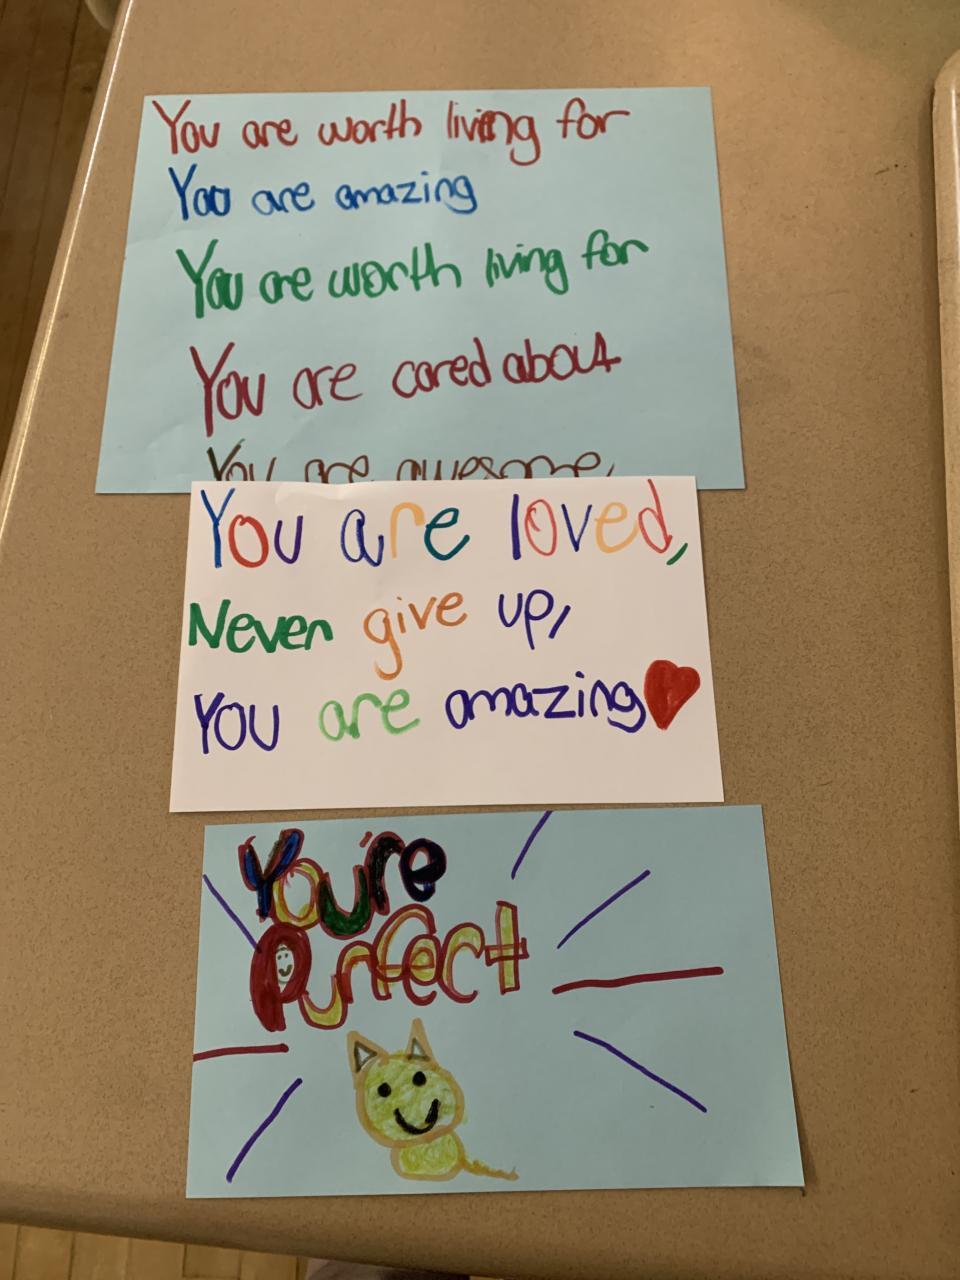 You are worth living for
You are amazing
You are worth living for
You are cared about
You are awesome,
You are loved,
Never give up,
You are amazing
You're
Purrfect